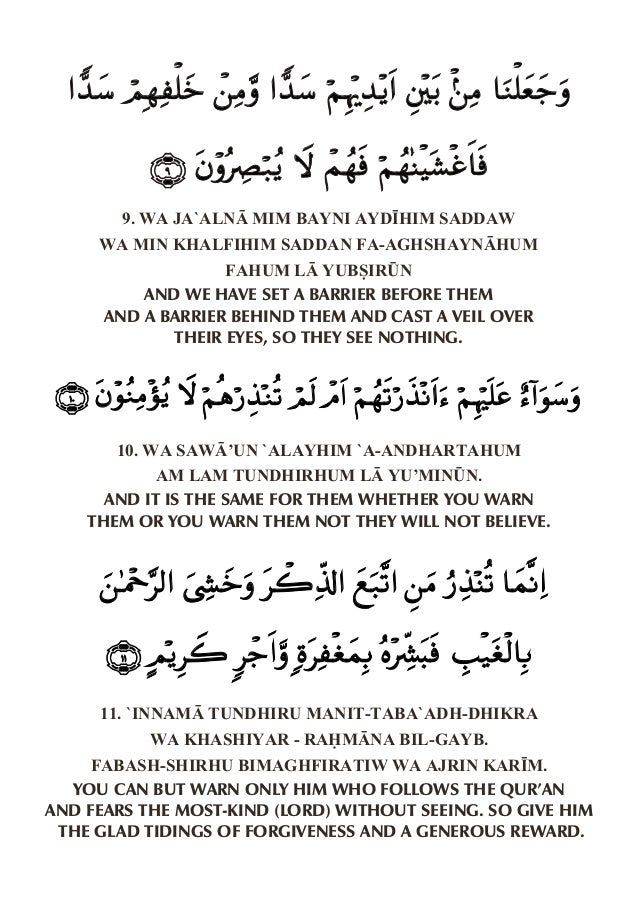 وَجَعَلْنَا مِنْۢ بَيْنِ اَيْدِيْهِمْ سَدًّا وَّمِنْ خَلْفِهِمْ سَدًّا
فَاَغْشَيْنٰهُمْ فَهُمْ لَا يُبْصِرُوْنَ ﴿٩﴾
9. WA JA`ALNĀ MIM BAYNI AYDĪHIM SADDAW
WA MIN KHALFIHIM SADDAN FA-AGHSHAYNĀHUM
FAHUM LĀ YUBṢIRŪN
AND WE HAVE SET A BARRIER BEFORE THEM
AND A BARRIER BEHIND THEM AND CAST A VEIL OVER
THEIR EYES, SO THEY SEE NOTHING.
وَسَوَآءٌ عَلَيْهِمْ ءَاَنْذَرْتَهُمْ اَمْ لَمْ تُنْذِرْهُمْ لَا يُؤْمِنُوْنَ ﴿١٠﴾
10. WA SAWĀ’UN `ALAYHIM `A-ANDHARTAHUM
AM LAM TUNDHIRHUM LĀ YU’MINŪN.
AND IT IS THE SAME FOR THEM WHETHER YOU WARN
THEM OR YOU WARN THEM NOT THEY WILL NOT BELIEVE.
اِنَّمَا تُنْذِرُ مَنِ اتَّبَعَ الذِّكْرَ وَخَشِيَ الرَّحْمٰنَ
بِالْغَيْبِ فَبَشِّرْهُ بِمَغْفِرَةٍ وَّاَجْرٍ كَرِيْمٍ ﴿١١﴾
11. `INNAMĀ TUNDHIRU MANIT-TABA`ADH-DHIKRA
WA KHASHIYAR - RAḤMĀNA BIL-GAYB.
FABASH-SHIRHU BIMAGHFIRATIW WA AJRIN KARĪM.
YOU CAN BUT WARN ONLY HIM WHO FOLLOWS THE QUR’AN
AND FEARS THE MOST-KIND (LORD) WITHOUT SEEING. SO GIVE HIM
THE GLAD TIDINGS OF FORGIVENESS AND A GENEROUS REWARD.